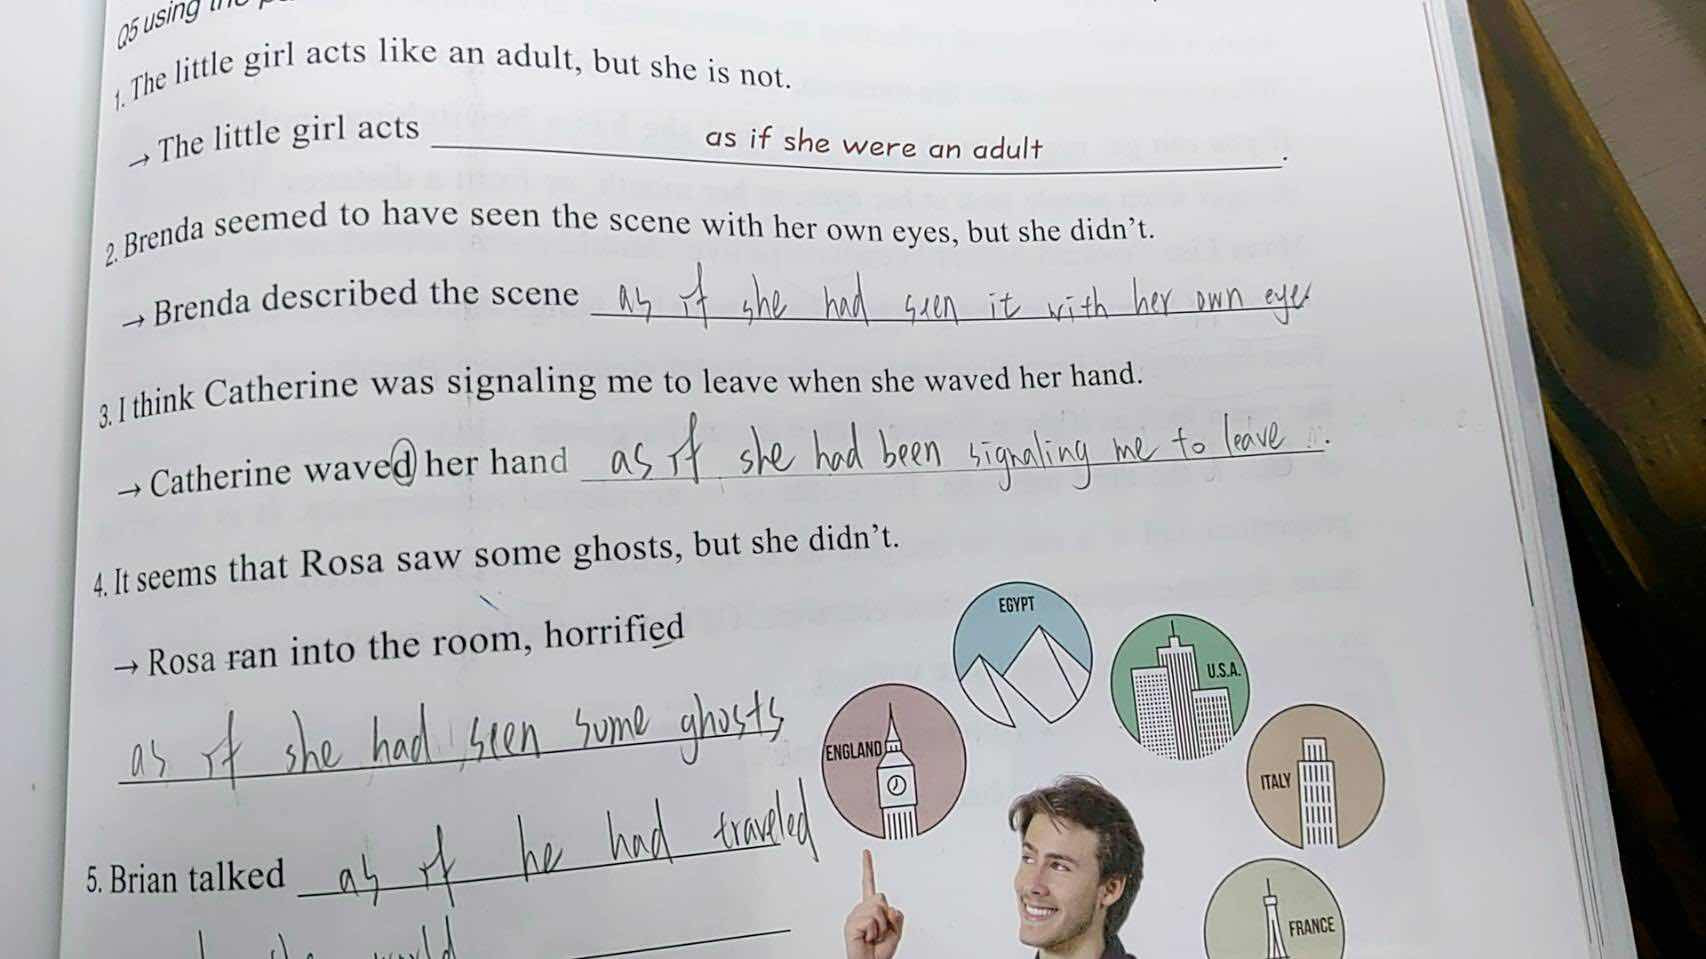 Q5 using the
1. The little girl acts like an adult, but she is not.
→ The little girl acts as if she were an adult.
2. Brenda seemed to have seen the scene with her own eyes, but she didn't.
→ Brenda described the scene as if she had seen it with her own eyes
3. I think Catherine was signaling me to leave when she waved her hand.
→ Catherine waved her hand as if she had been signaling me to leave.
4. It seems that Rosa saw some ghosts, but she didn't.
→ Rosa ran into the room, horrified
as if she had seen some ghosts
5. Brian talked as if he had traveled
EGYPT
U.S.A.
ENGLAND
ITALY
FRANCE